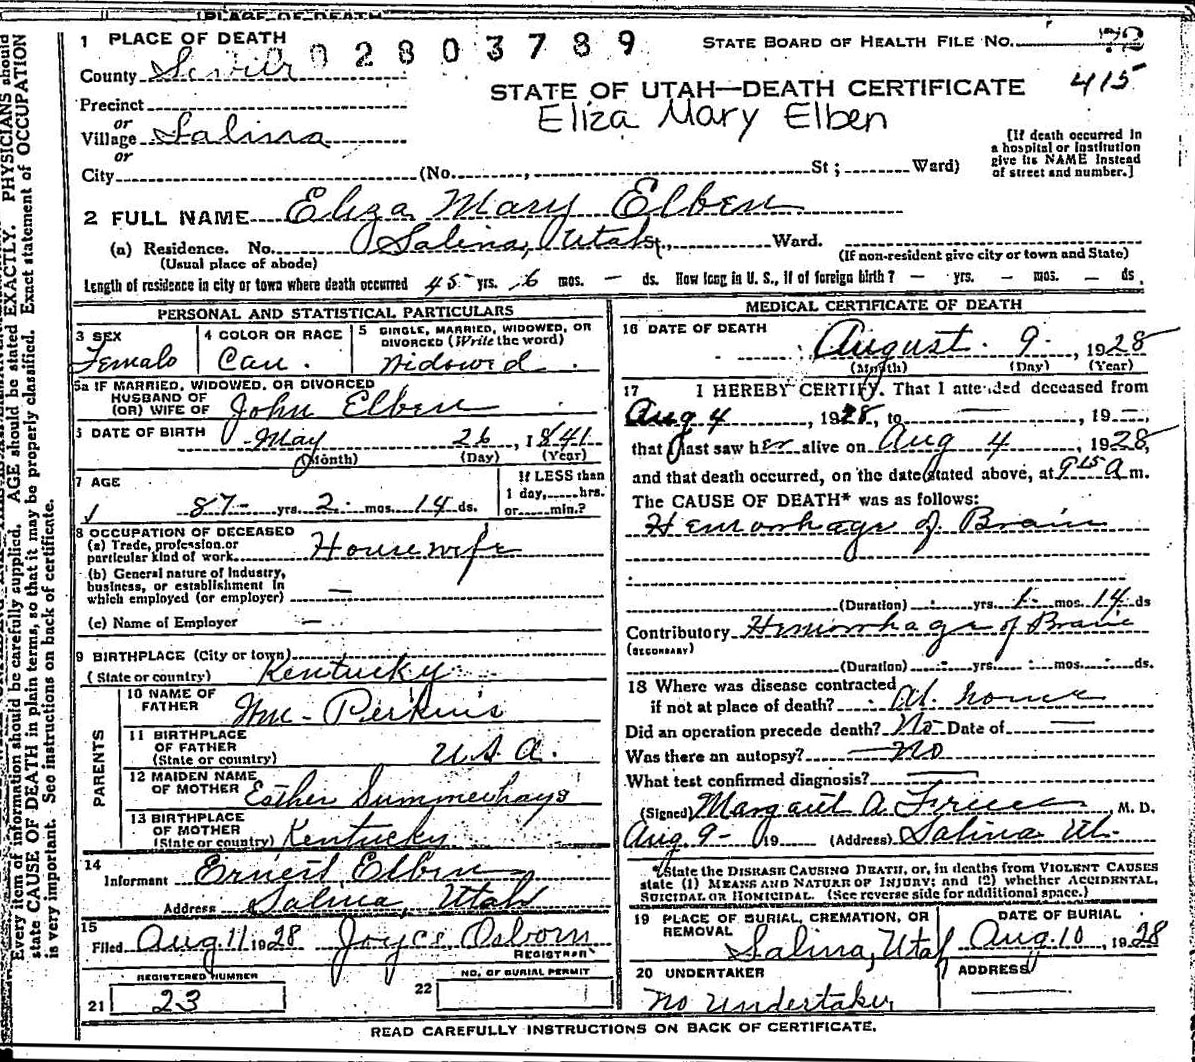 PLACE OF DEATH
1 PLACE OF DEATH
02803789
STATE BOARD OF HEALTH FILE NO. 72
County Sevier
415
STATE OF UTAH—DEATH CERTIFICATE
Eliza Mary Elben
Precinct
or
Village Salina
or
City (No. , St ; Ward)
[If death occurred in
a hospital or institution
give its NAME instead
of street and number.]
2 FULL NAME Eliza Mary Elben
(a) Residence. No. Salina, Utah, Ward.
(Usual place of abode)
(If non-resident give city or town and State)
Length of residence in city or town where death occurred 45 yrs. 6 mos. — ds. How long in U. S., if of foreign birth? — yrs. — mos. — ds.
PERSONAL AND STATISTICAL PARTICULARS
3 SEX
Female
4 COLOR OR RACE
Cau.
5 SINGLE, MARRIED, WIDOWED, OR
DIVORCED (Write the word)
Widowed
5a IF MARRIED, WIDOWED, OR DIVORCED
HUSBAND OF
(OR) WIFE OF John Elben
6 DATE OF BIRTH May 26, 1841
(Month) (Day) (Year)
7 AGE
87 yrs. 2 mos. 14 ds.
If LESS than
1 day, hrs.
or min.?
8 OCCUPATION OF DECEASED
(a) Trade, profession, or
particular kind of work Housewife
(b) General nature of Industry,
business, or establishment in
which employed (or employer) —
(c) Name of Employer —
9 BIRTHPLACE (City or town)
(State or country) Kentucky
PARENTS
10 NAME OF
FATHER Wm- Perkins
11 BIRTHPLACE
OF FATHER
(State or country) U S A.
12 MAIDEN NAME
OF MOTHER Esther Summerhays
13 BIRTHPLACE
OF MOTHER
(State or country) Kentucky
14
Informant Ernest Elben
Address Salina, Utah
15
Filed Aug. 11, 1928 Joyce Osborn
REGISTRAR
REGISTERED NUMBER
21 23
NO. OF BURIAL PERMIT
22
MEDICAL CERTIFICATE OF DEATH
16 DATE OF DEATH
August 9, 1928
(Month) (Day) (Year)
17 I HEREBY CERTIFY, That I attended deceased from
Aug 4, 1928, to — , 19 —,
that I last saw her alive on Aug 4, 1928,
and that death occurred, on the date stated above, at 9 15 a m.
The CAUSE OF DEATH* was as follows:
Hemorrhage of Brain
(Duration) yrs. 1 mos. 14 ds
Contributory Hemorrhage of Brain
(SECONDARY)
(Duration) yrs. mos. ds.
18 Where was disease contracted
if not at place of death? At home
Did an operation precede death? No Date of —
Was there an autopsy? No
What test confirmed diagnosis? —
(Signed) Margaret A M. D.
Aug. 9- 19 (Address) Salina Ut.
*State the DISEASE CAUSING DEATH, or, in deaths from VIOLENT CAUSES
state (1) MEANS AND NATURE OF INJURY; and (2) whether ACCIDENTAL,
SUICIDAL OR HOMICIDAL. (See reverse side for additional space.)
19 PLACE OF BURIAL, CREMATION, OR
REMOVAL
Salina, Utah
DATE OF BURIAL
Aug. 10, 1928
20 UNDERTAKER
No Undertaker
ADDRESS
READ CAREFULLY INSTRUCTIONS ON BACK OF CERTIFICATE.
Every item of information should be carefully supplied. AGE should be stated EXACTLY. PHYSICIANS should
state CAUSE OF DEATH in plain terms, so that it may be properly classified. Exact statement of OCCUPATION
is very important. See instructions on back of certificate.